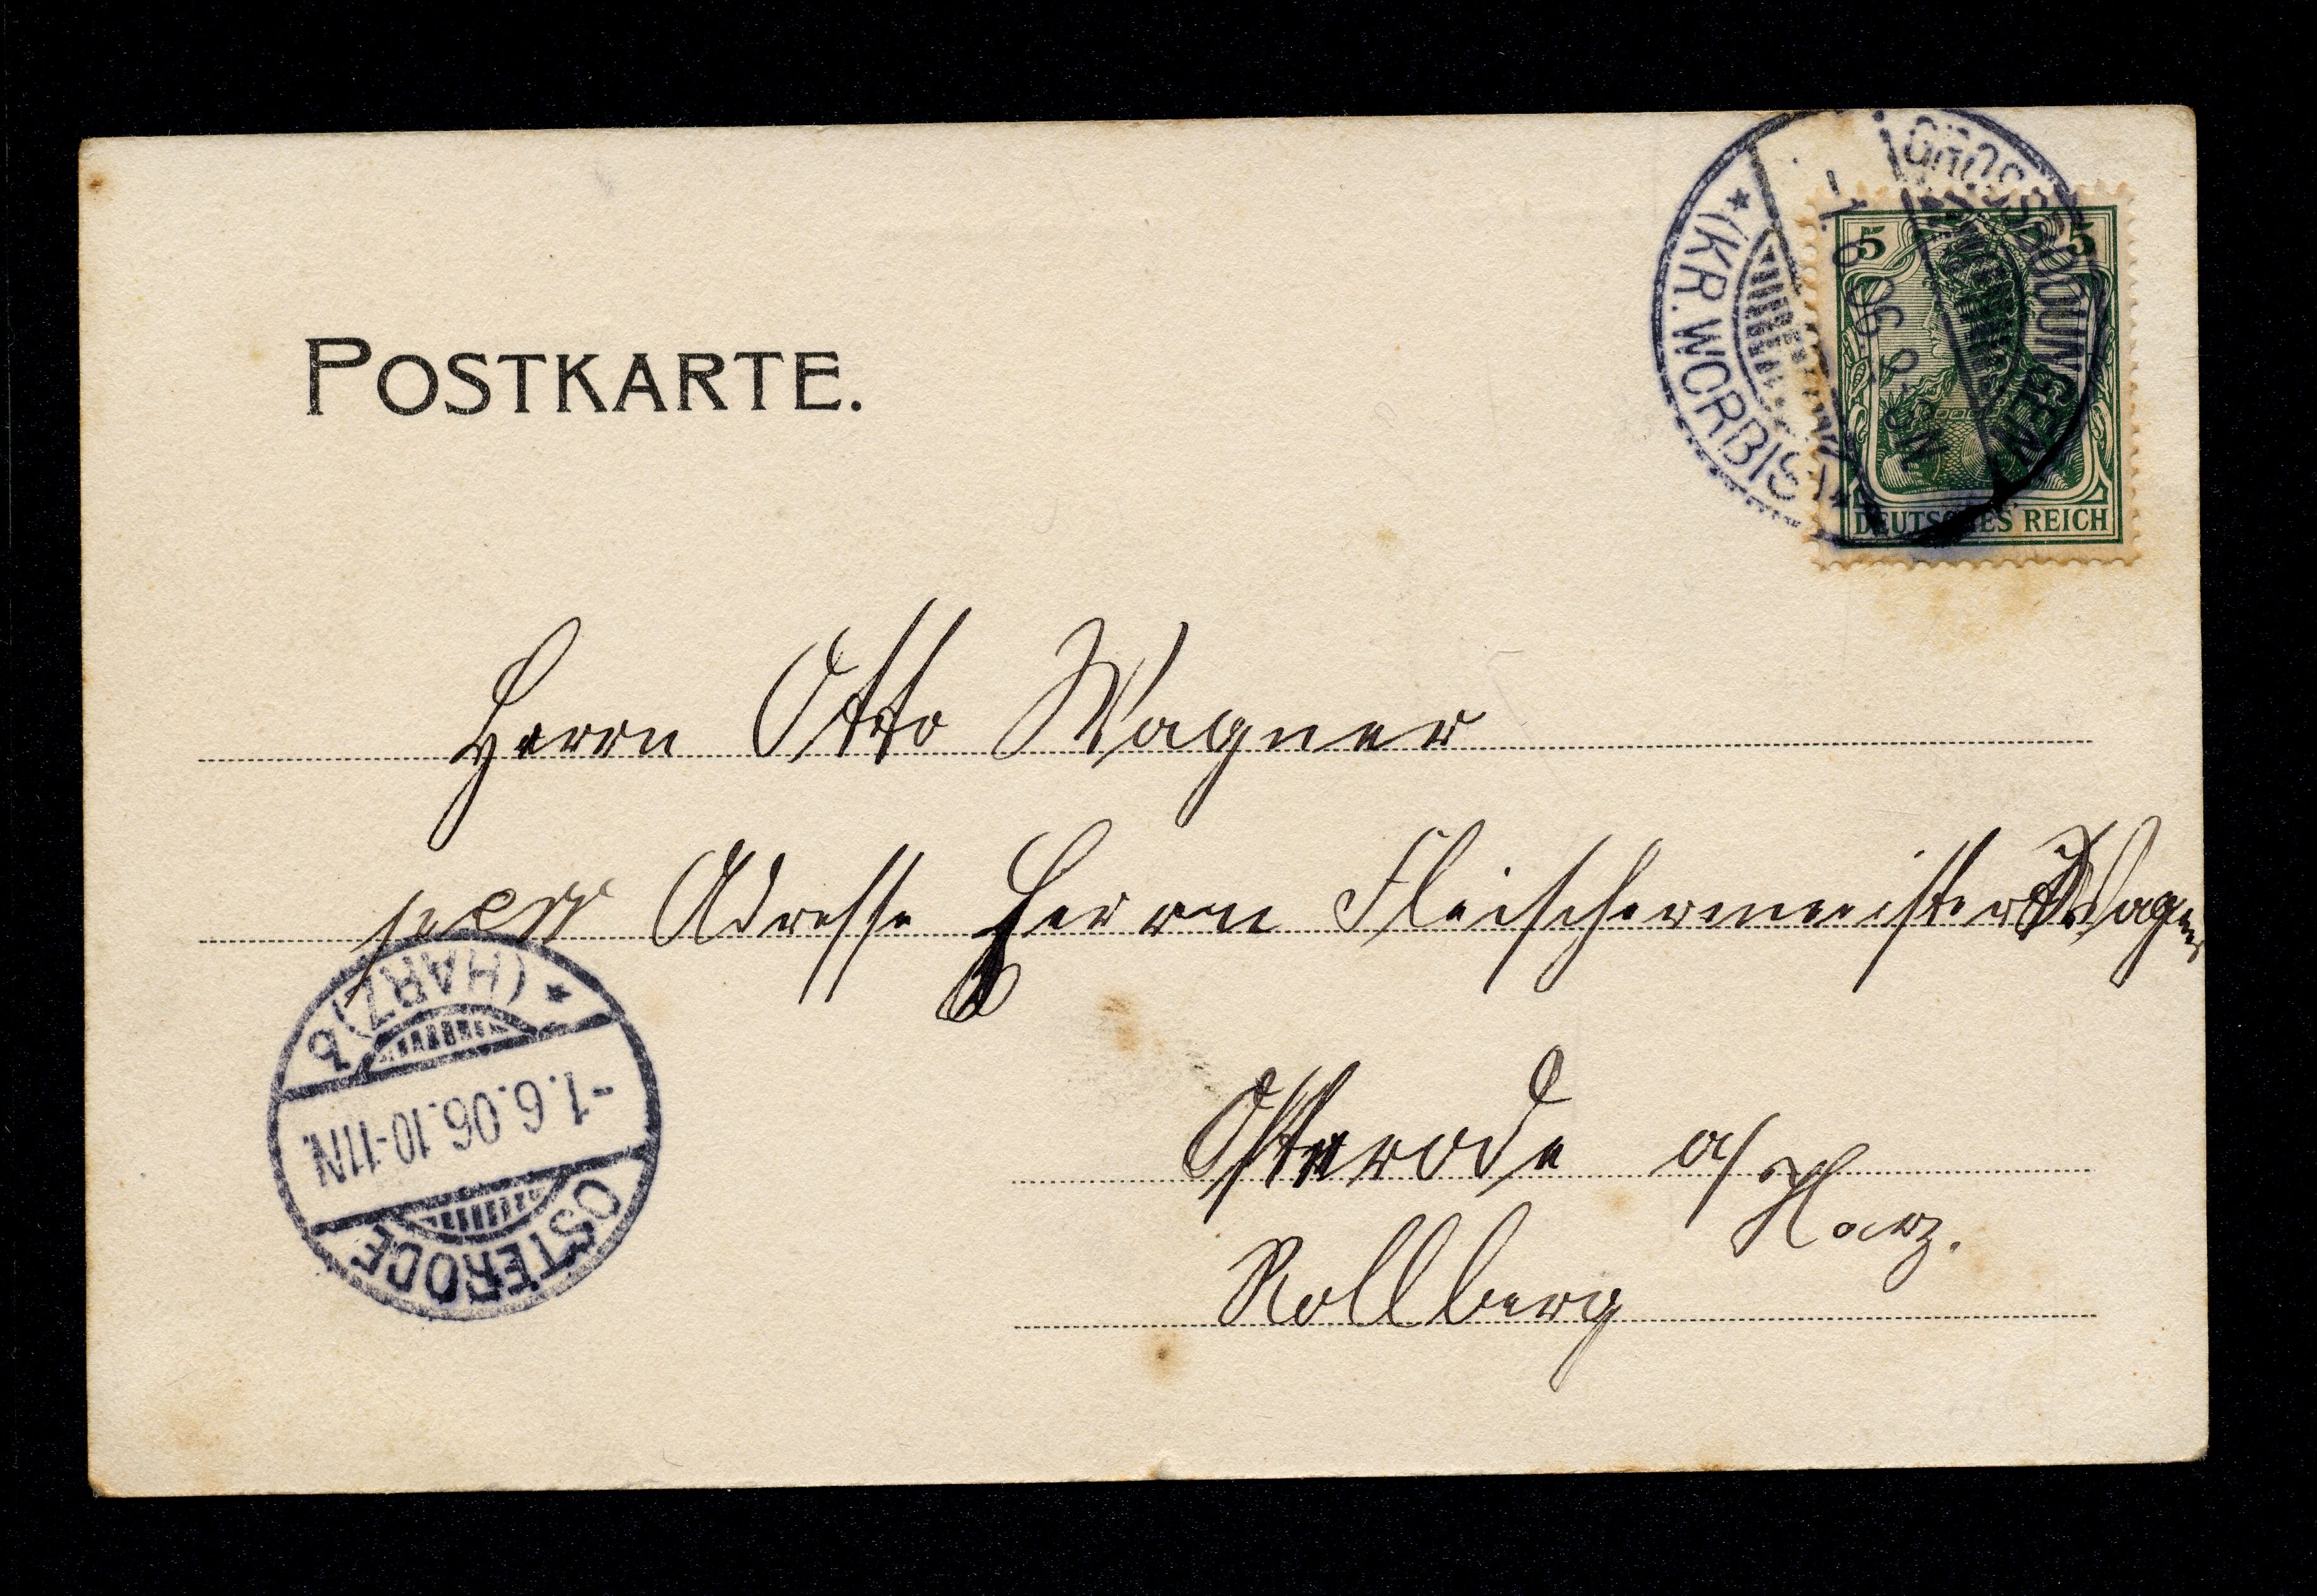 POSTKARTE.
GROSSBODUNGEN
-1.6.06. 8-9N
* (KR. WORBIS) *
5 5
DEUTSCHES REICH
Herrn Otto Wagner
per Adresse Herrn Fleischermeister Wagner
Osterode a/Harz.
Rollberg
* (HARZ) b
-1.6.06.10-11N.
OSTERODE